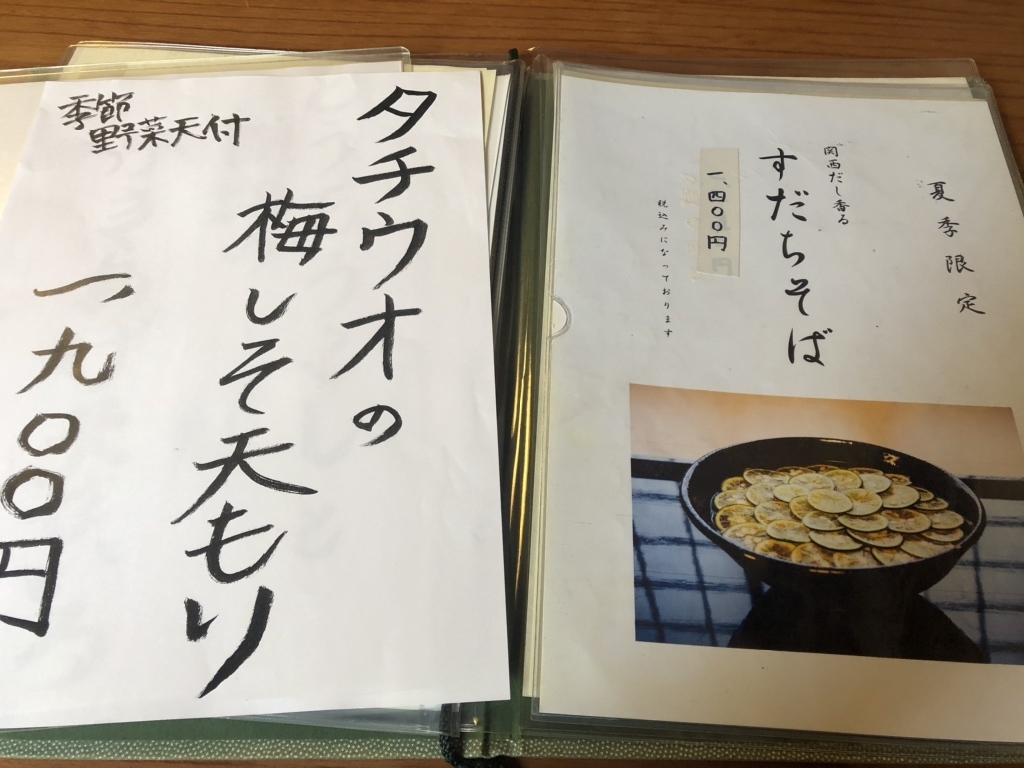 季節
野菜天付
タチウオの
梅しそ天もり
一、九〇〇円
夏季限定
関西だし香る
すだちそば
一、四〇〇円
税込みになっております